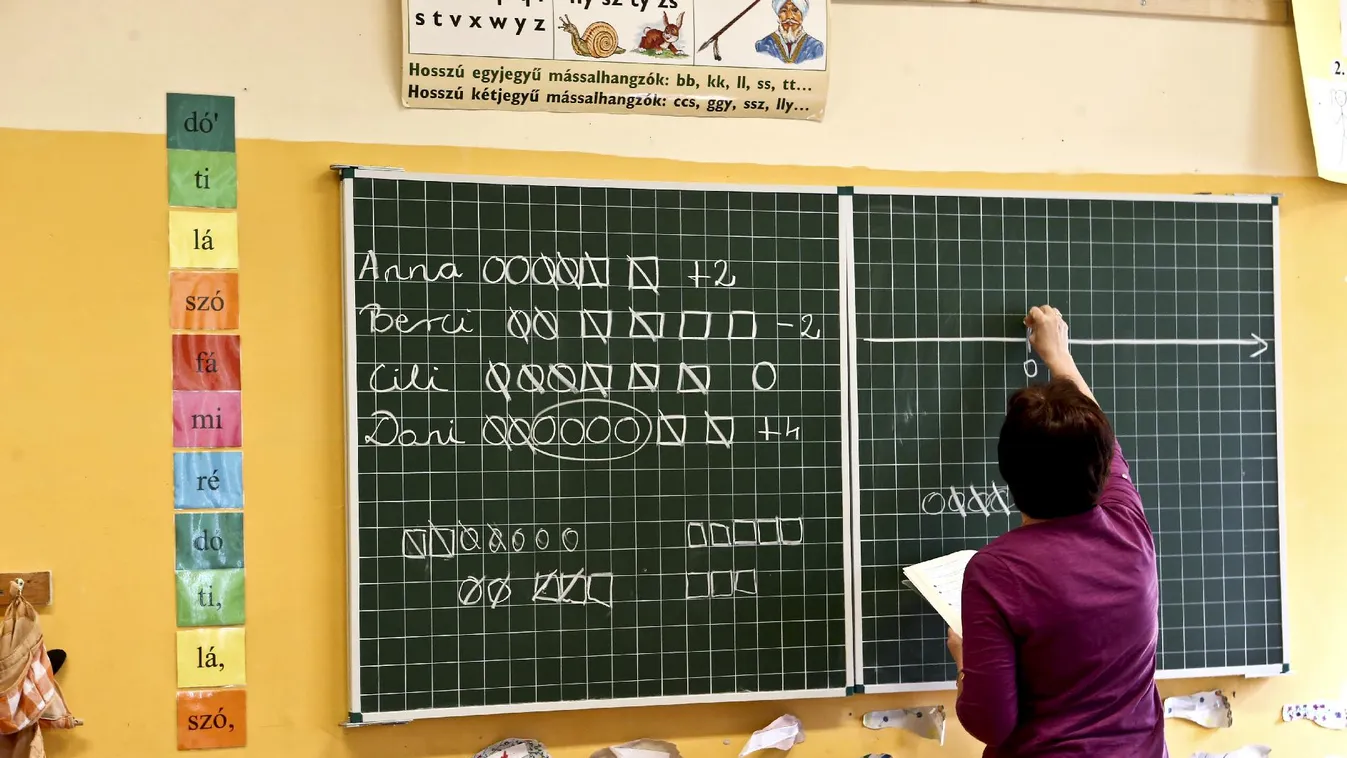 s t v x w y z
sz ty zs
Hosszú egyjegyű mássalhangzók: bb, kk, ll, ss, tt...
Hosszú kétjegyű mássalhangzók: ccs, ggy, ssz, lly...
2.
dó'
ti
lá
szó
fá
mi
ré
dó
ti,
lá,
szó,
Anna +2
Berci -2
Cili 0
Dani +4
0